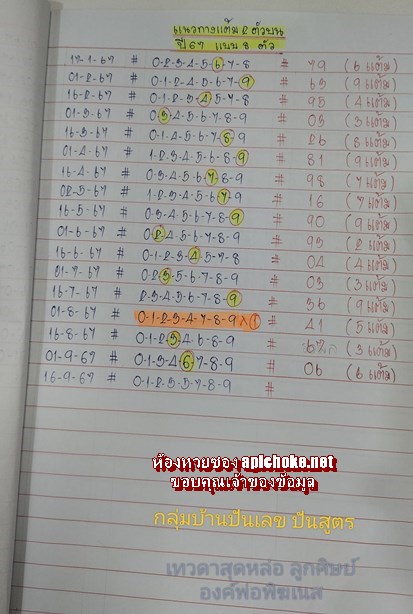 แนวทางแต้ม 2 ตัวบน
ปี 67 แบบ 8 ตัว
17-1-67 # 0-2-3-4-5-6-7-8 # 79 (6 แต้ม)
01-2-67 # 0-1-2-4-5-6-7-9 # 63 (9 แต้ม)
16-2-67 # 0-1-2-3-4-5-7-8 # 95 (4 แต้ม)
01-3-67 # 0-3-4-5-6-7-8-9 # 03 (3 แต้ม)
16-3-67 # 0-1-4-5-6-7-8-9 # 26 (8 แต้ม)
01-4-67 # 1-2-3-4-5-6-8-9 # 81 (9 แต้ม)
16-4-67 # 0-3-4-5-6-7-8-9 # 98 (7 แต้ม)
02-5-67 # 1-2-3-4-5-6-7-9 # 16 (7 แต้ม)
16-5-67 # 0-3-4-5-6-7-8-9 # 90 (9 แต้ม)
01-6-67 # 0-2-4-5-6-7-8-9 # 93 (2 แต้ม)
16-6-67 # 0-1-2-3-4-5-7-8 # 04 (4 แต้ม)
01-7-67 # 0-2-3-5-6-7-8-9 # 03 (3 แต้ม)
16-7-67 # 2-3-4-5-6-7-8-9 # 36 (9 แต้ม)
01-8-67 # 0-1-2-3-4-7-8-9 X # 41 (5 แต้ม)
16-8-67 # 0-1-2-3-4-6-8-9 # 67 (3 แต้ม)
01-9-67 # 0-1-3-4-6-7-8-9 # 06 (6 แต้ม)
16-9-67 # 0-1-2-3-5-7-8-9 #
ห้องหวยซอง apichoke.net
ขอบคุณเจ้าของข้อมูล
กลุ่มบ้านปันเลข ปันสูตร
เทวดาสุดหล่อ ลูกศิษย์
องค์พ่อพิฆเนส